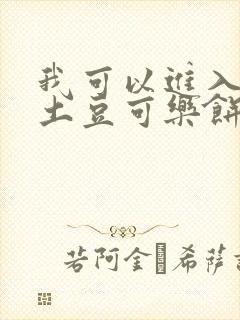 我可以進入
土豆可樂餅
若阿金·希薩